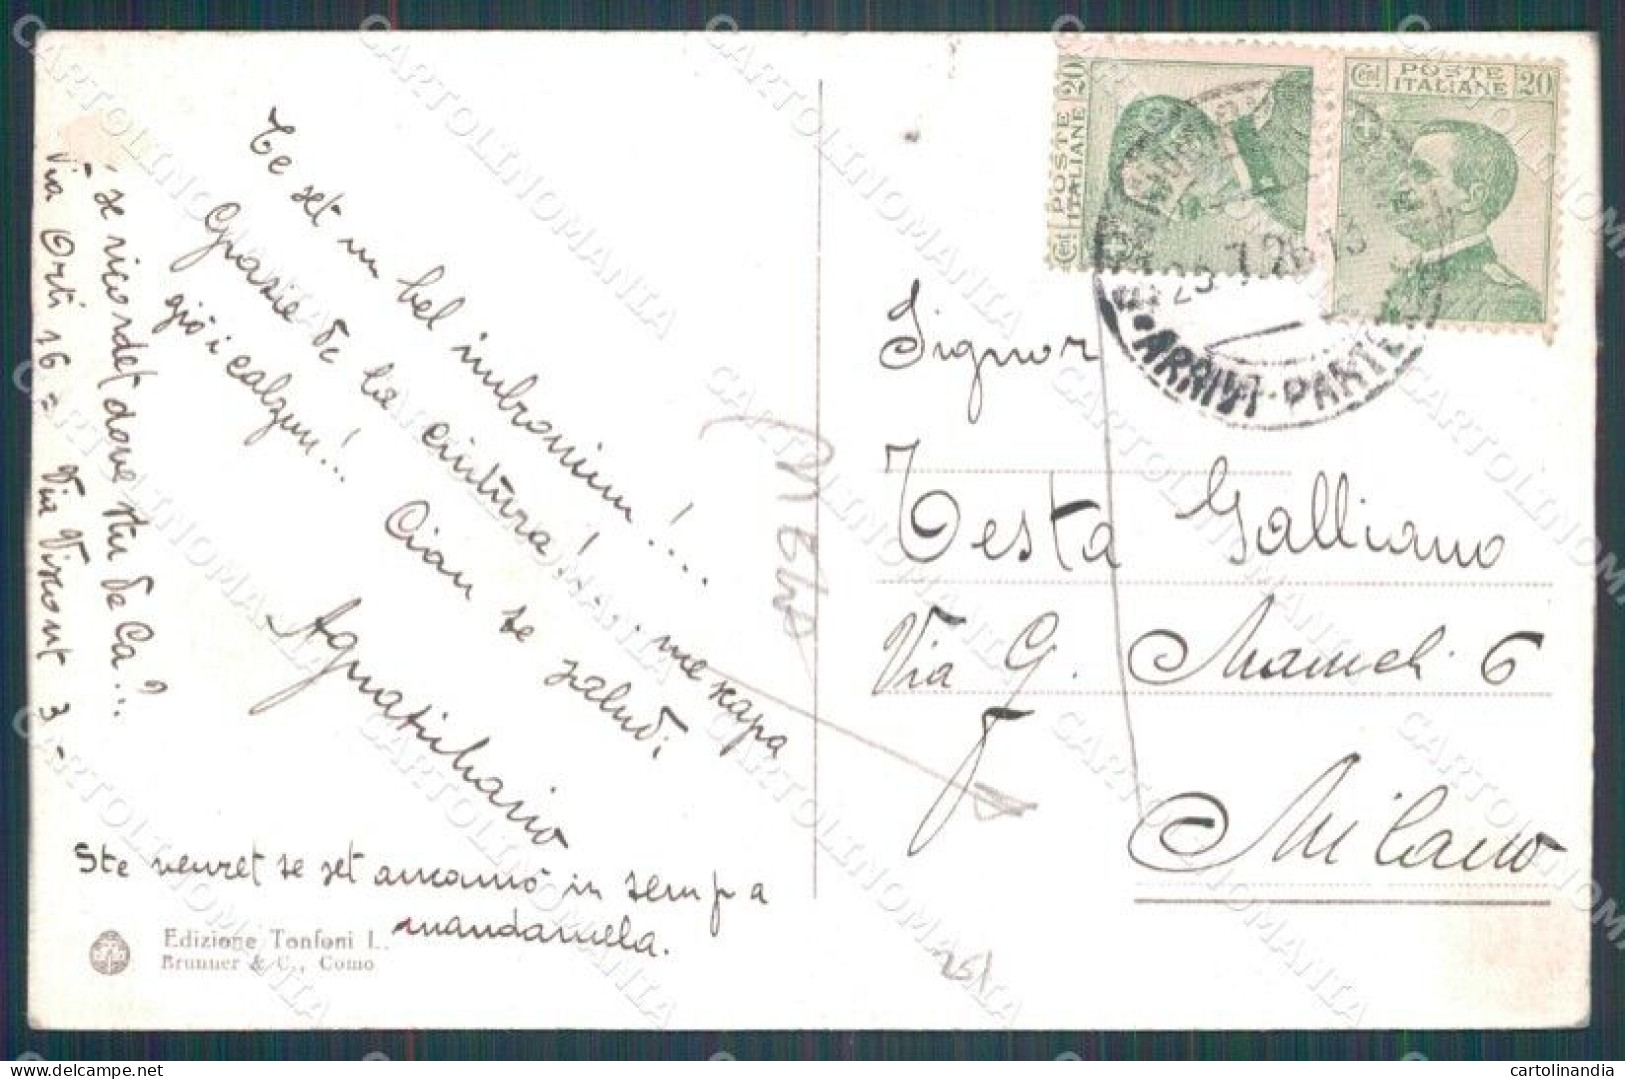 Te set un bel imbronim!...
Grazie de la cintura!... me scapa
giò i calzun!.. Ciau te saludi
Agnatinhaiio
Ste veuret se set ancamò in temp a
mandamela.
se ricordet dove stu de Ca?..
Via Orti 16 = Via Viscont 3 -
Edizione Tonfoni L.
Brunner & C., Como
POSTE ITALIANE
Cent. 20
Cent. POSTE ITALIANE 20
25.7.26.13
ARRIVI PARTENZE
Signor
Testa Galliano
Via G. Mameli 6
Milano
251
CARTOLINOMANIA
cartolinandia